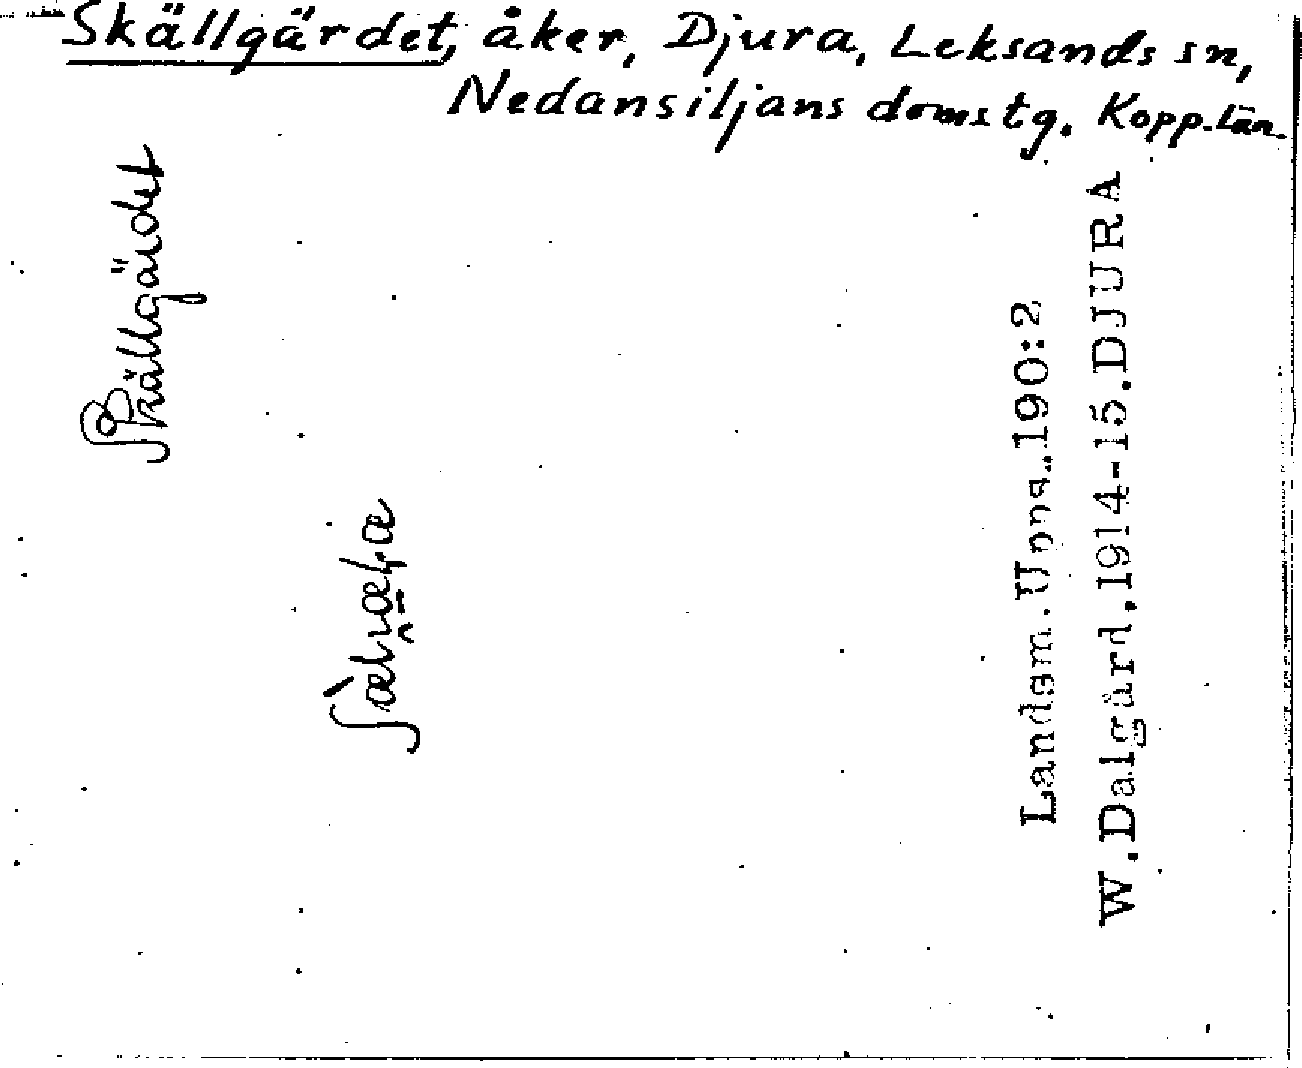 Skällgärdet, åker, Djura, Leksands sn,
Nedansiljans domstg. Kopp. län.
Skällgärdet
Landsm. Upps. 190:2
W. Dalgård. 1914-15. DJURA